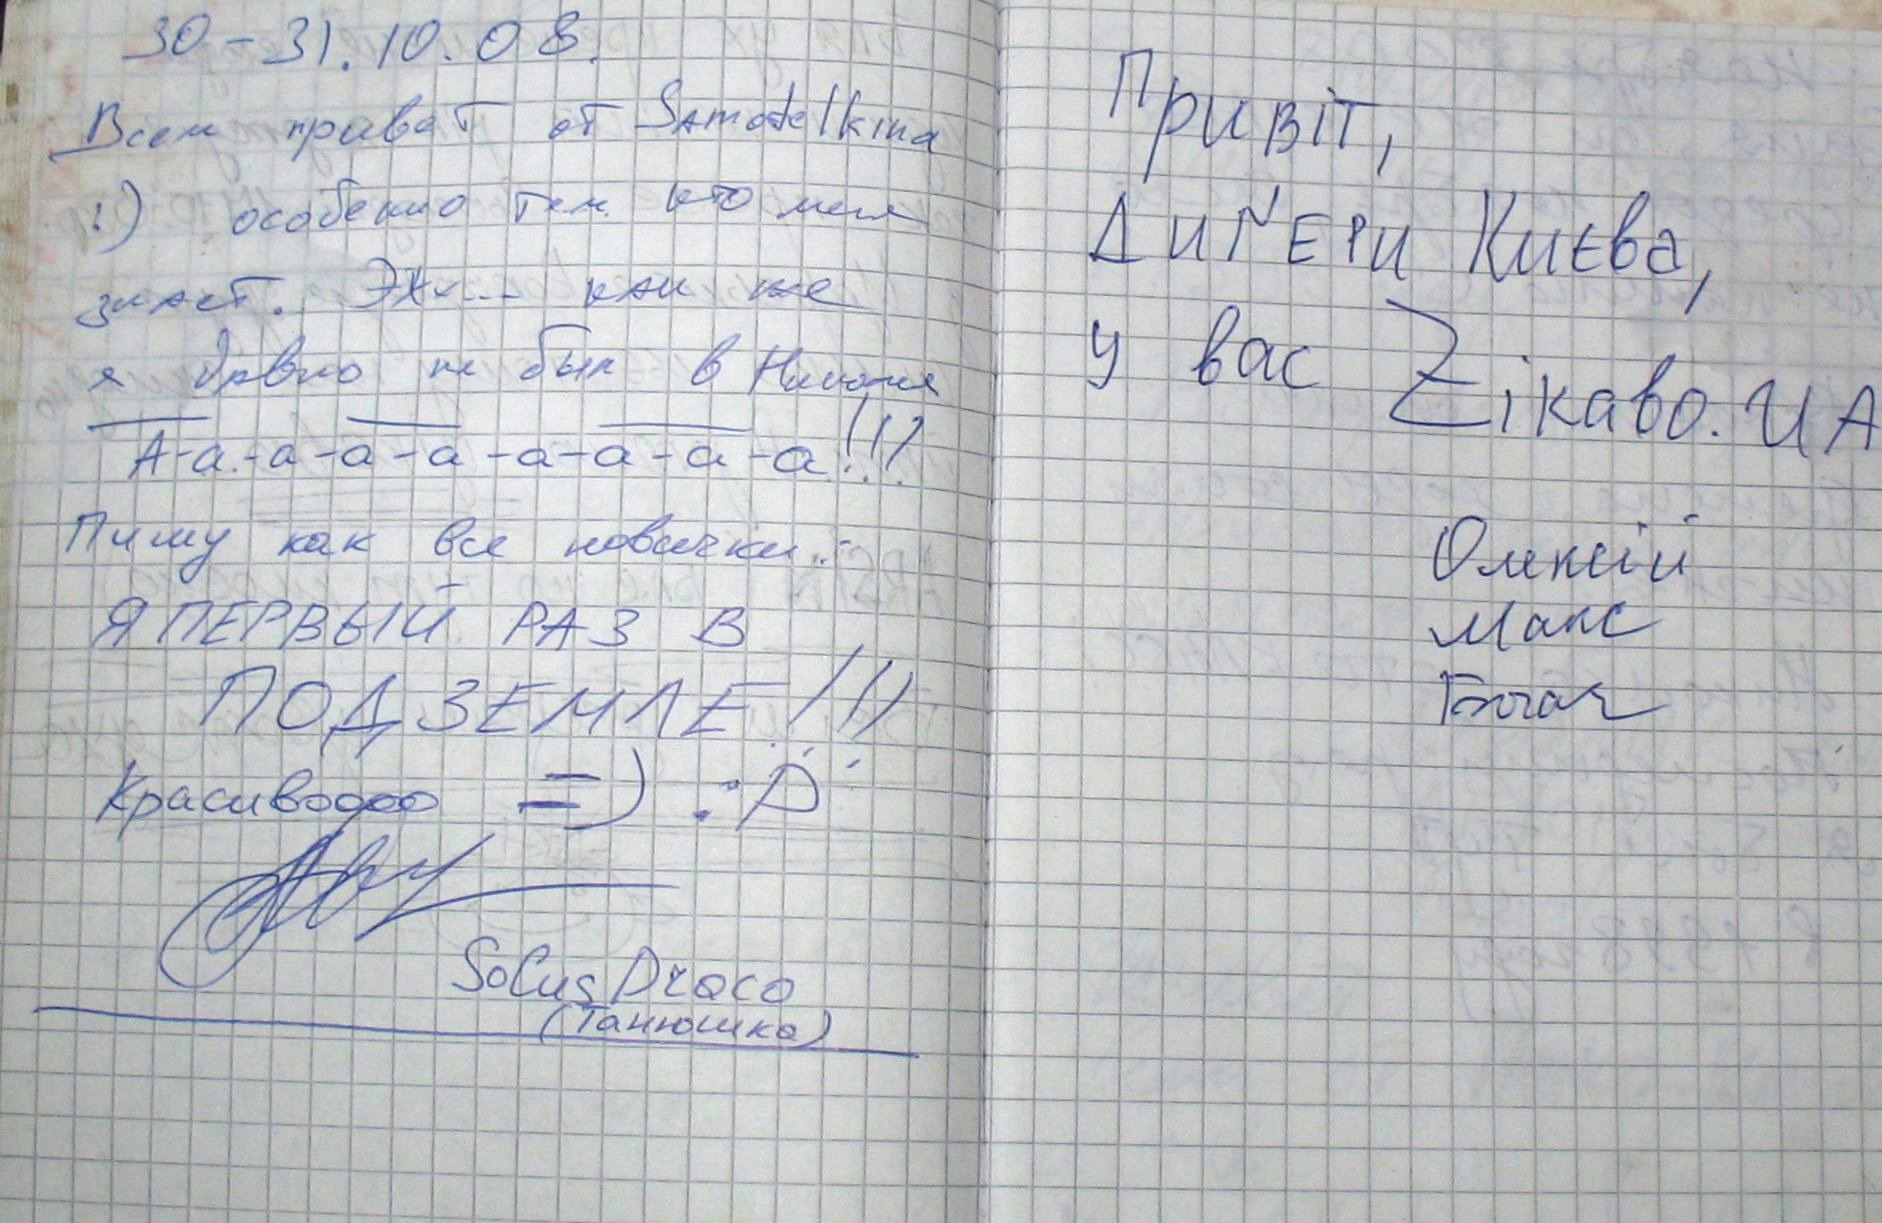 30-31.10.08.
Всем приват от Samodelkina
:) особенно тем кто меня
знает. Эхх... как же
я давно не был в Никоня
А-а-а-а-а-а-а-а-а!!!
Пишу как все новички..:
Я ПЕРВЫЙ РАЗ В
ПОДЗЕМЛЕ!!!
Красивоооо =) :Р
Solus Draco
(Танюшка)
Привіт,
ДИҐЕРИ Києва,
у вас Zікаво.UA
Олексій
Макс